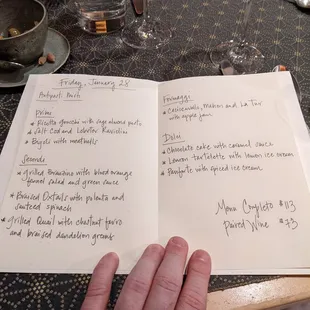 Friday, January 28
Antipasti Misti
Primi
* Ricotta Gnocchi with sage almond pesto
* Salt Cod and Lobster Ravioli
* Bigoli with meatballs
Secondi
* grilled Branzino with blood orange
fennel salad and green sauce
* Braised Oxtails with polenta and
sauteed spinach
* grilled Quail with chestnut farro
and braised dandelion greens
Formaggi
* Castelrosso, Moliterno and La Tur
with apple jam
Dolci
* Chocolate cake with caramel sauce
* Lemon tartlette with lemon ice cream
* Panforte with spiced ice cream
Menu Completo $113
Paired Wine $73